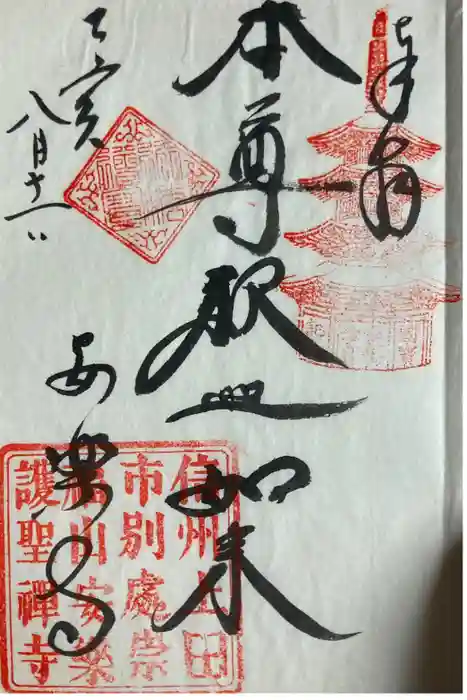 奉拝
本尊釈迦如来
乙亥
八月十一日
安楽寺
信州上田
市別處崇
福山安樂
護聖禪寺